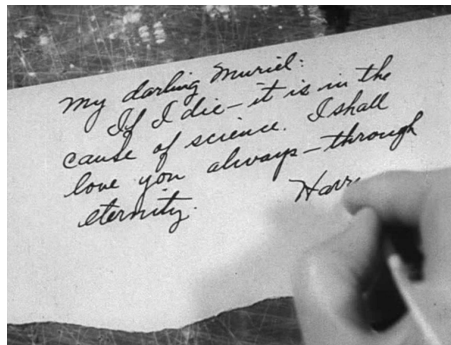 My darling Muriel:
If I die - it is in the
cause of science. I shall
love you always - through
eternity.
Harr